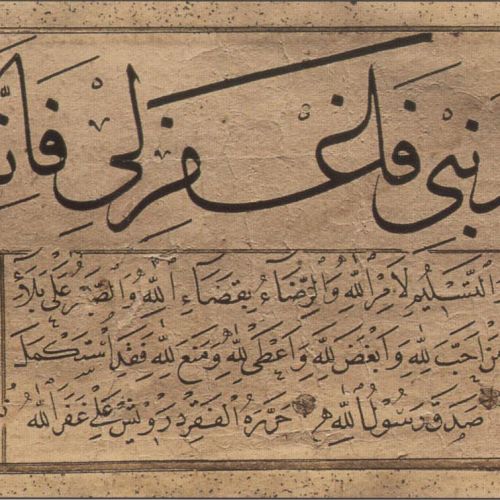 فَاغْفِرْ لِىْ
التَّسْلِيمُ لِاَمْرِ اللّٰهِ وَالرِّضَاءُ بِقَضَاءِ اللّٰهِ وَالصَّبْرُ عَلٰى بَلَاءِ
مَنْ اَحَبَّ لِلّٰهِ وَاَبْغَضَ لِلّٰهِ وَاَعْطٰى لِلّٰهِ وَمَنَعَ لِلّٰهِ فَقَدِ اسْتَكْمَلَ
صَدَقَ رَسُولُ اللّٰهِ حَرَّرَهُ الْفَقِيرُ دَرْوِيش عَلِى غَفَرَ اللّٰهُ